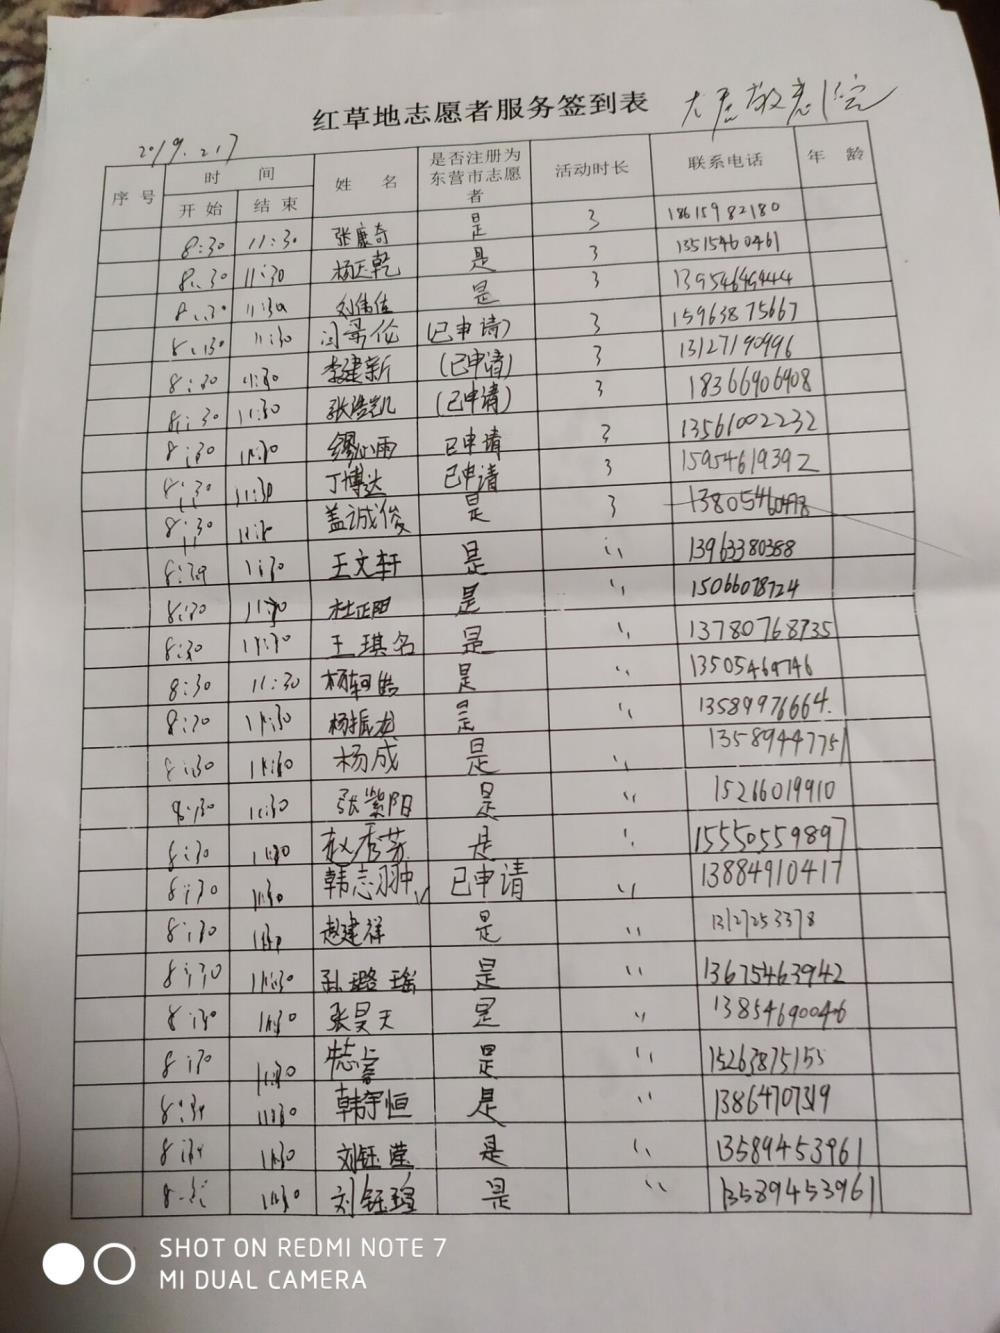 红草地志愿者服务签到表
2019.2.17
序号 时间 姓名 是否注册为东营市志愿者 活动时长 联系电话 年龄
开始 结束
8:30 11:30 张康奇 是 3 18615982180
8:30 11:30 杨正乾 是 3 13515460461
8:30 11:30 刘伟佳 是 3
8:30 11:30 闫哥伦 (已申请) 3 15963875667
8:30 11:30 李建新 (已申请) 3 13127190996
8:30 11:30 张浩凯 (已申请) 3 18366906908
8:30 11:30 缪心雨 已申请 3 13561002232
8:30 11:30 丁博达 已申请 3 15954619392
8:30 11:30 盖诚俊 是 3
8:30 11:30 王文轩 是 〃 13963380388
8:30 11:30 杜正阳 是 〃 15066078724
8:30 11:30 王琪名 是 〃 13780768935
8:30 11:30 杨轲皓 是 〃 13505469746
8:30 11:30 杨振龙 是 〃 13589976664
8:30 11:30 杨成 是 〃 13589447751
8:30 11:30 张紫阳 是 〃 15266019910
8:30 11:30 赵秀芬 是 〃 15550559897
8:30 11:30 韩志翀 已申请 〃 13884910417
8:30 11:30 赵建祥 是 〃
8:30 11:30 孙璐瑶 是 〃 13675463942
8:30 11:30 张昊天 是 〃 13854690046
8:30 11:30 是 〃 15263875155
8:30 11:30 韩宇恒 是 〃 13864707319
8:30 11:30 刘钰莹 是 〃 13589453961
11:30 刘钰瑶 是 〃 13589453961
SHOT ON REDMI NOTE 7
MI DUAL CAMERA